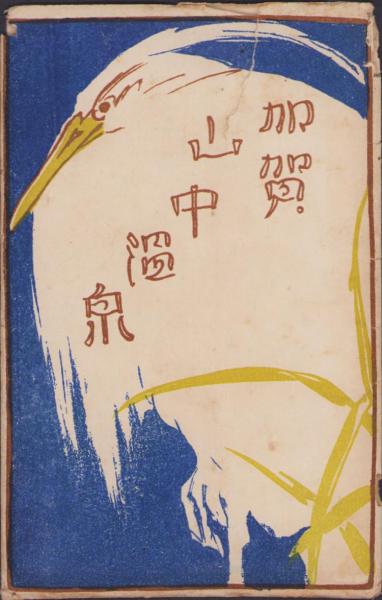 加賀
山中
温泉